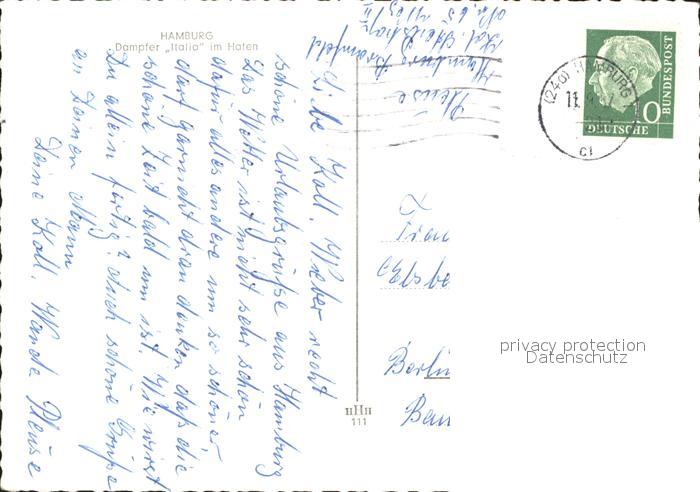 HAMBURG
Dampfer „Italia" im Hafen
Liebe Koll. Weber recht
schöne Urlaubsgrüße aus Hamburg
Das Wetter ist nicht sehr schön
dafür alles andere um so schöner
darf garnicht dran denken daß die
schöne Zeit bald um ist. Wie wirst
Du allein fertig? Auch schöne Grüße
an Deinen Mann
Deine Koll. Wanda Pleuse
Pleuse
Hamburg Bramfeld
DEUTSCHE
BUNDESPOST
10
(24a) HAMBURG
11
c1
Frau
Elsbe
Berlin
Bau
hHh
111
privacy protection
Datenschutz